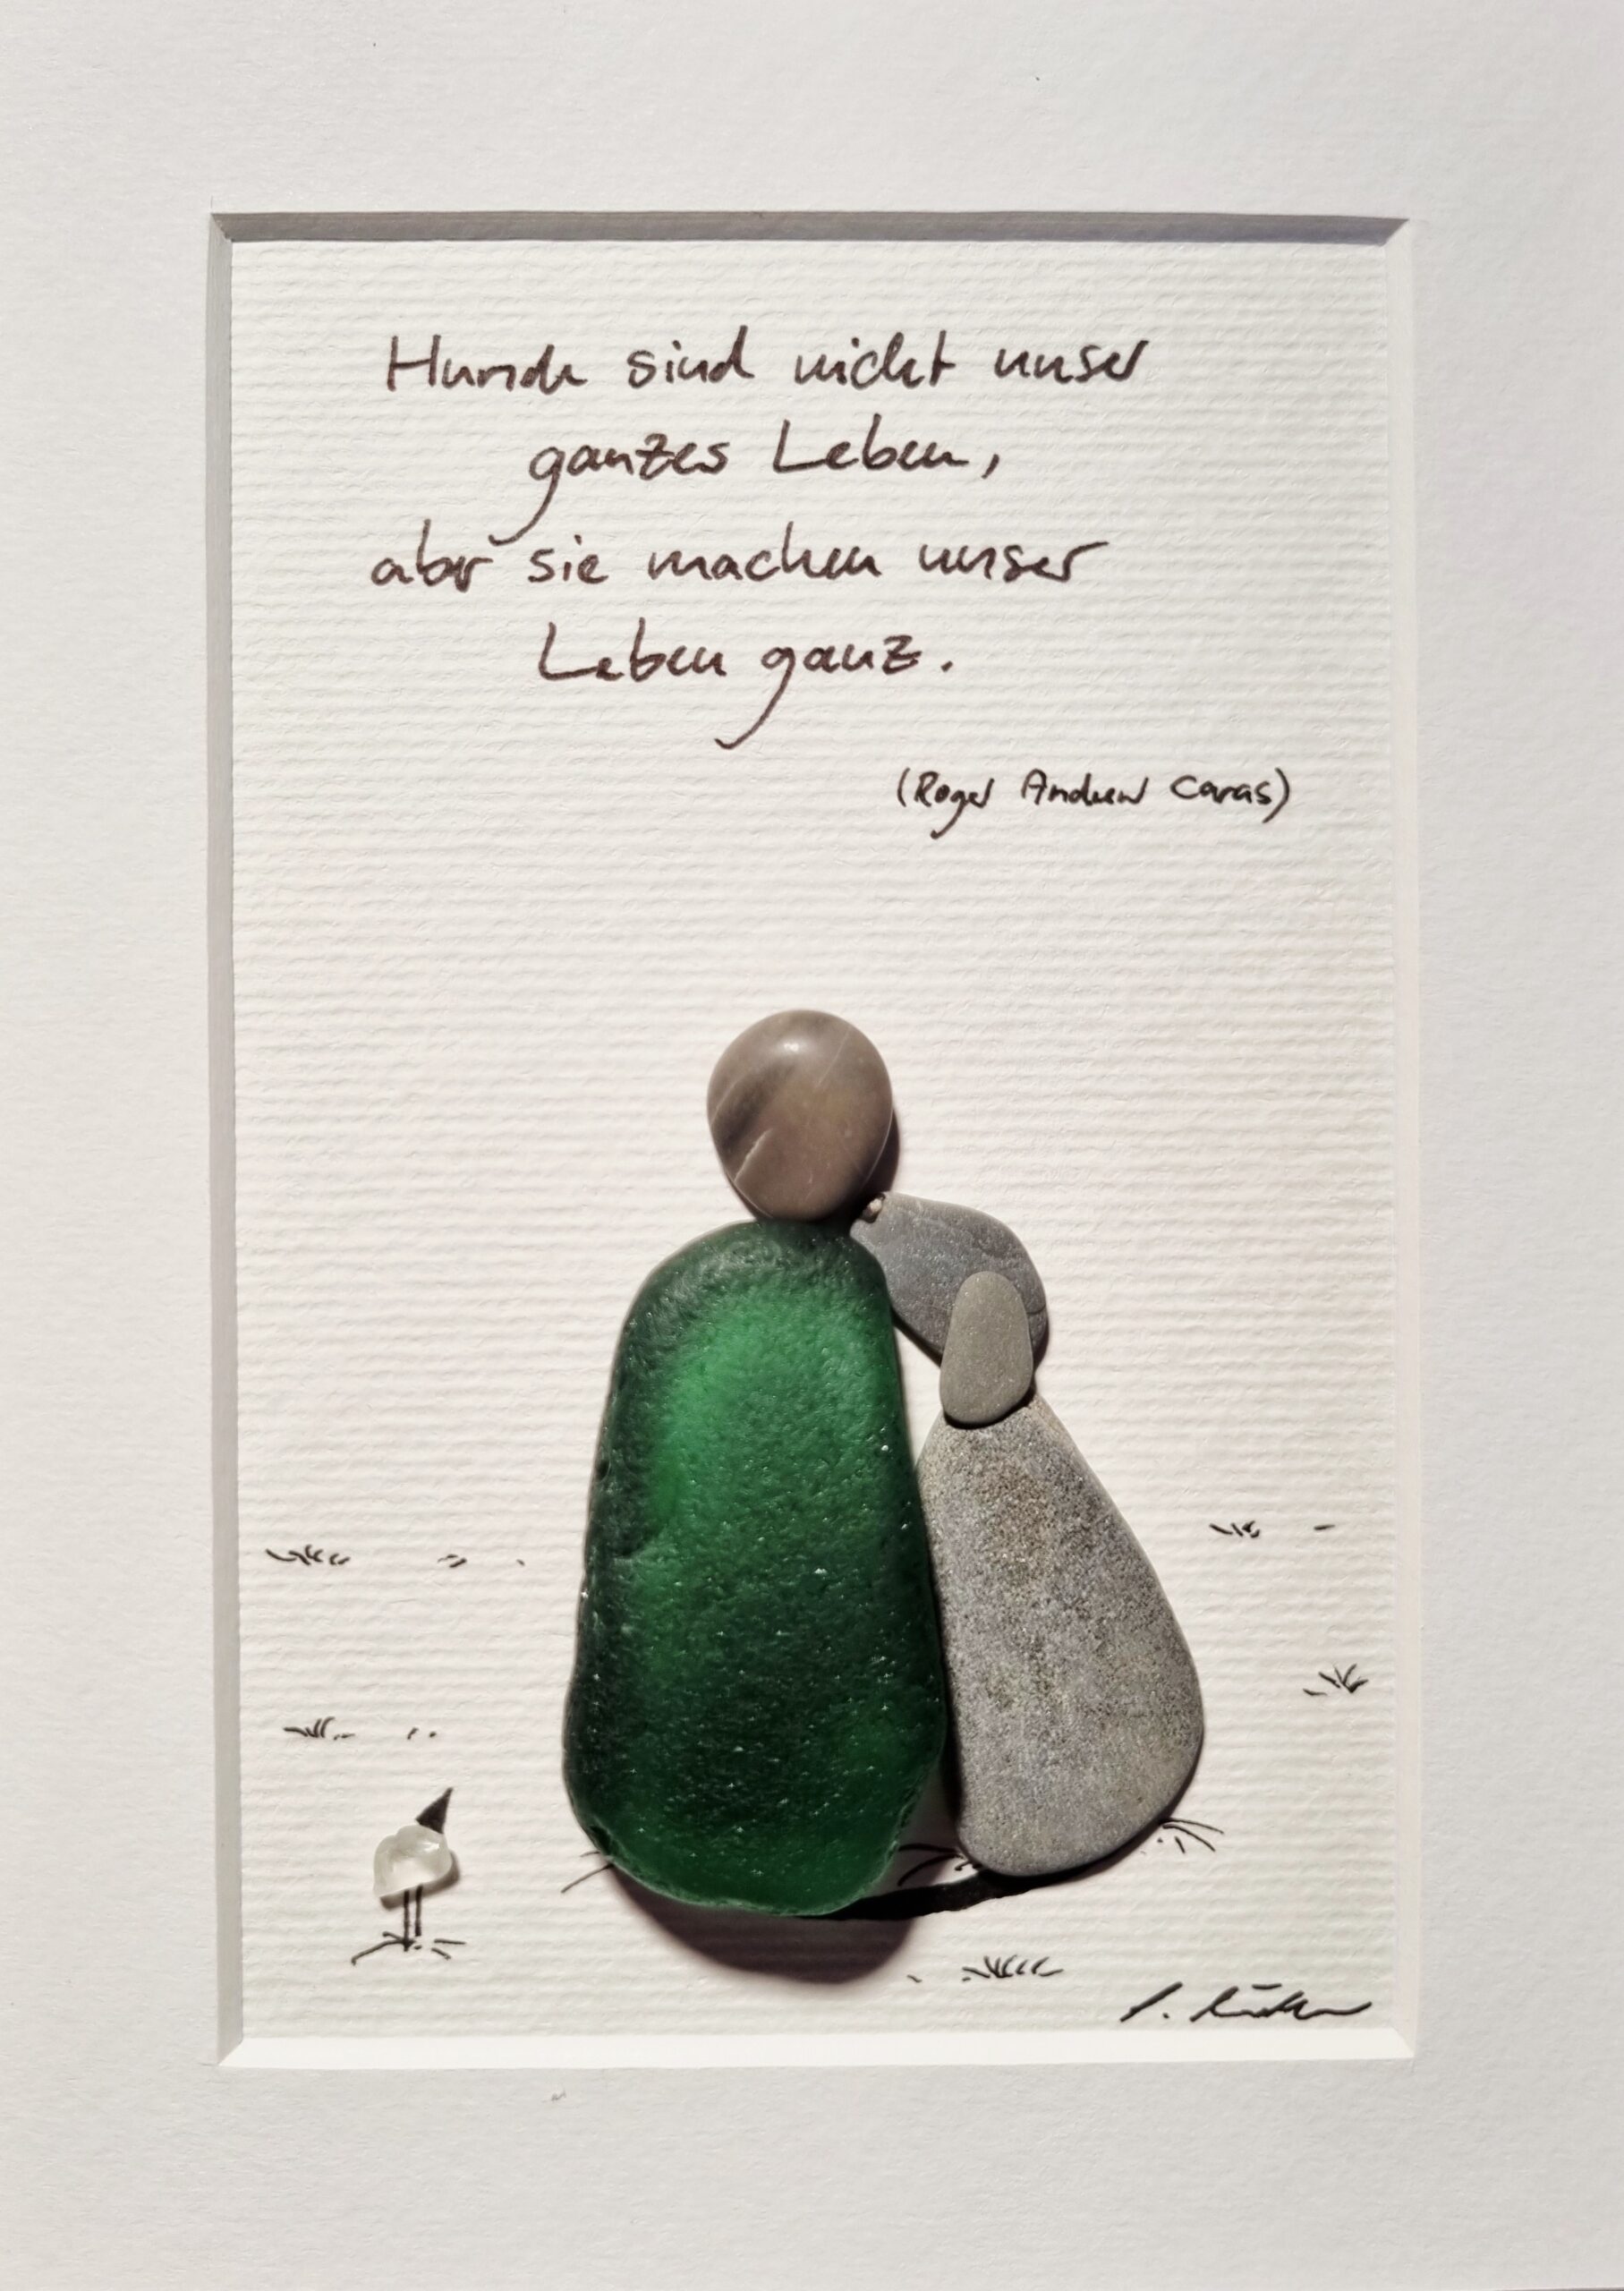 Hunde sind nicht unser
ganzes Leben,
aber sie machen unser
Leben ganz.
(Roger Andrew Caras)